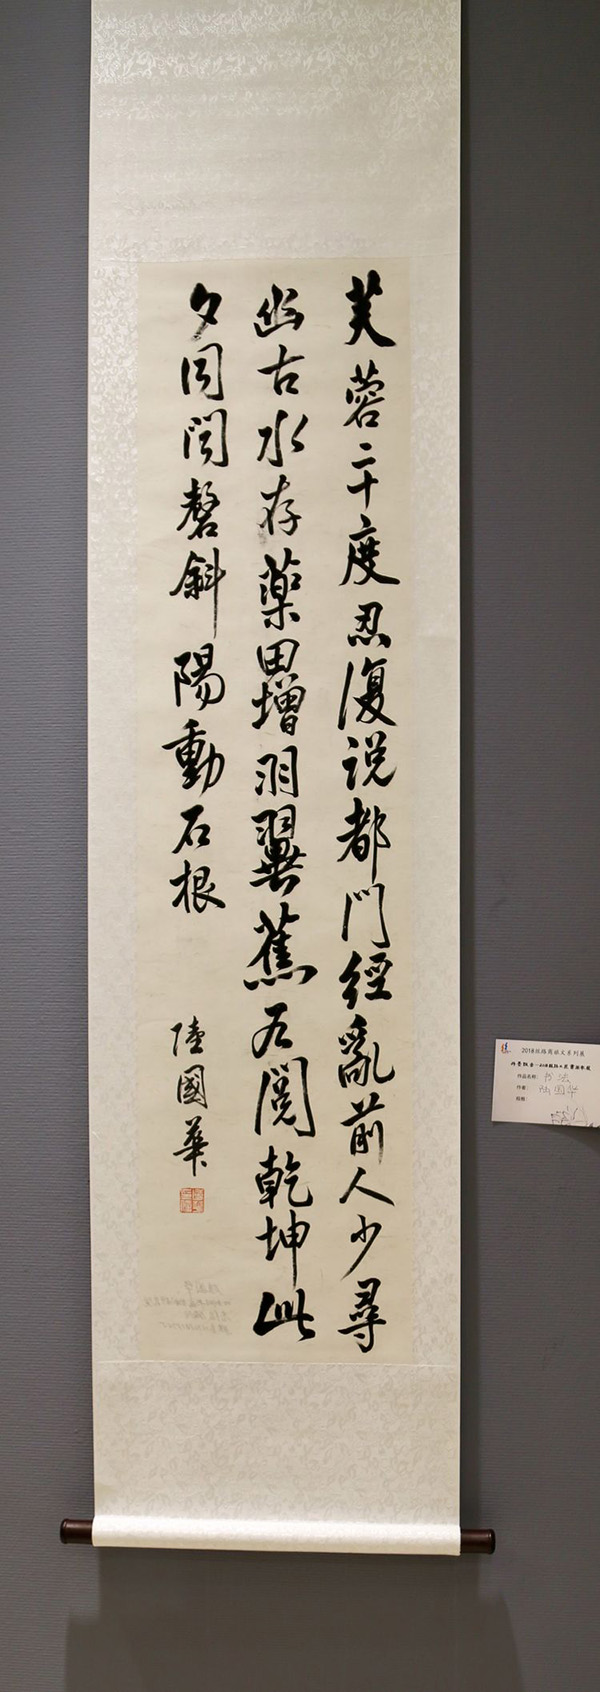 芙蓉二十度忍復说都門經亂前人少尋
幽古水存藥田增羽翼蕉石閲乾坤此
夕同闻磬斜陽動石根
陸國華
2018丝路周祖文系列展
作品名称：书法
作者：陆国华
规格：